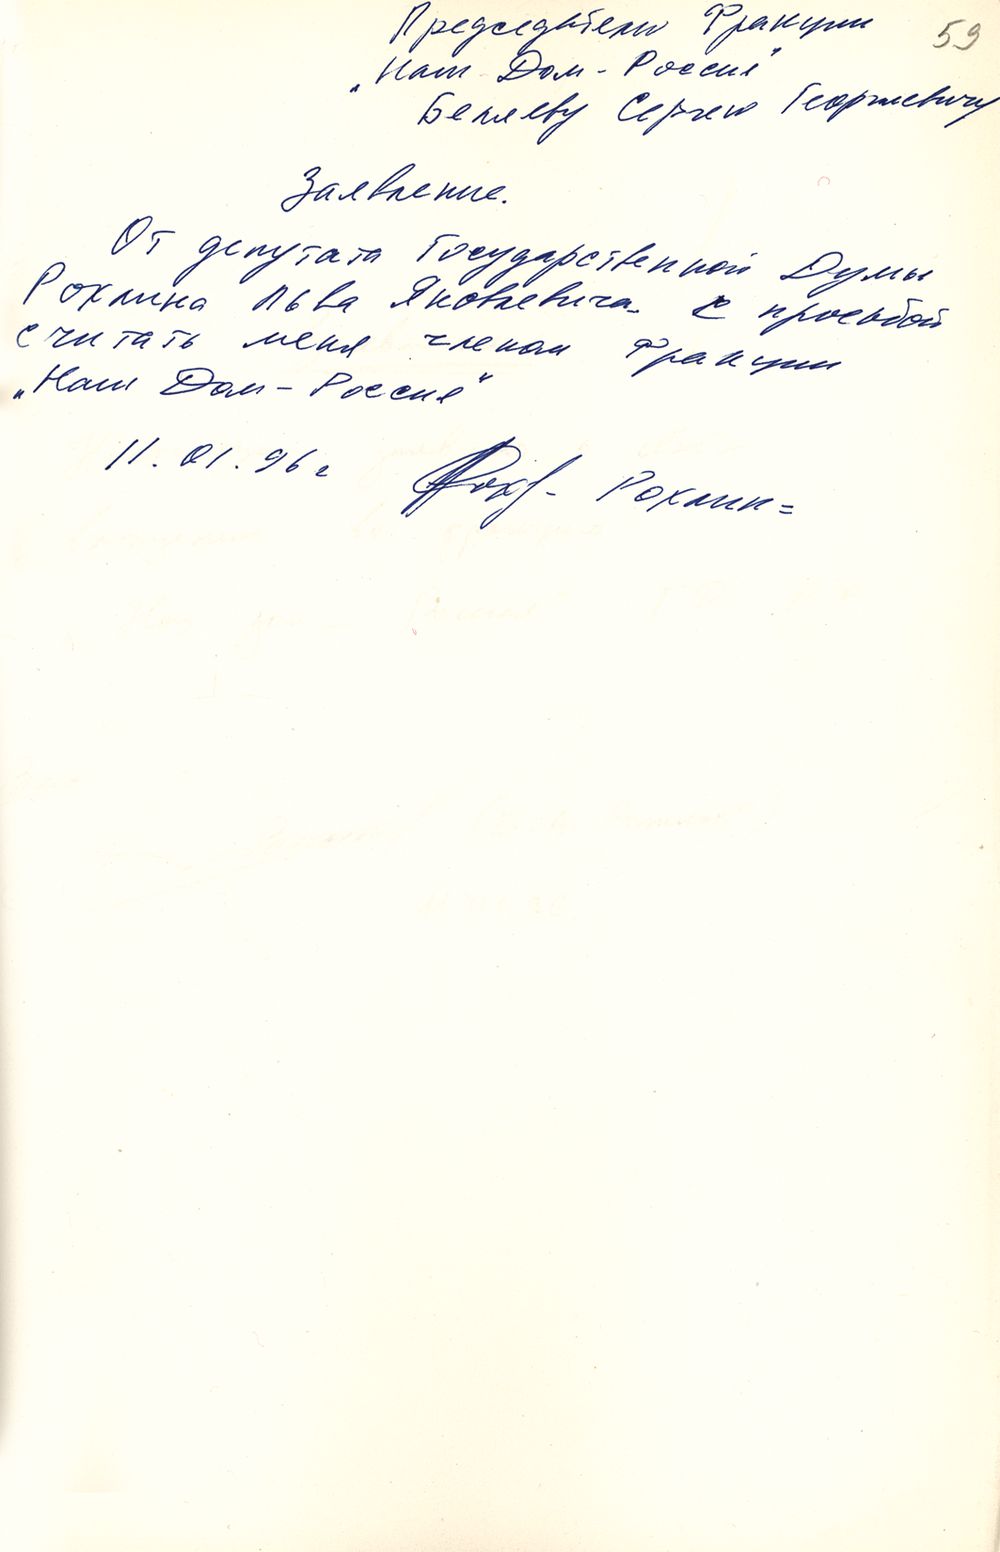 59
Председателю Фракции
„Наш Дом - Россия"
Беляеву Сергею Георгиевичу
Заявление.
От депутата Государственной Думы
Рохлина Льва Яковлевича с просьбой
считать меня членом Фракции
„Наш Дом - Россия"
11.01.96 г
Рох - Рохлин =